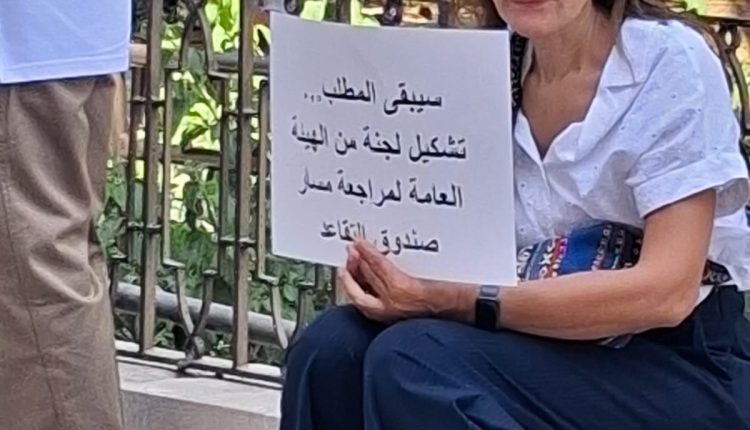 سيبقى المطلب،،
تشكيل لجنة من الهيئة
العامة لمراجعة مسار
صندوق التقاعد